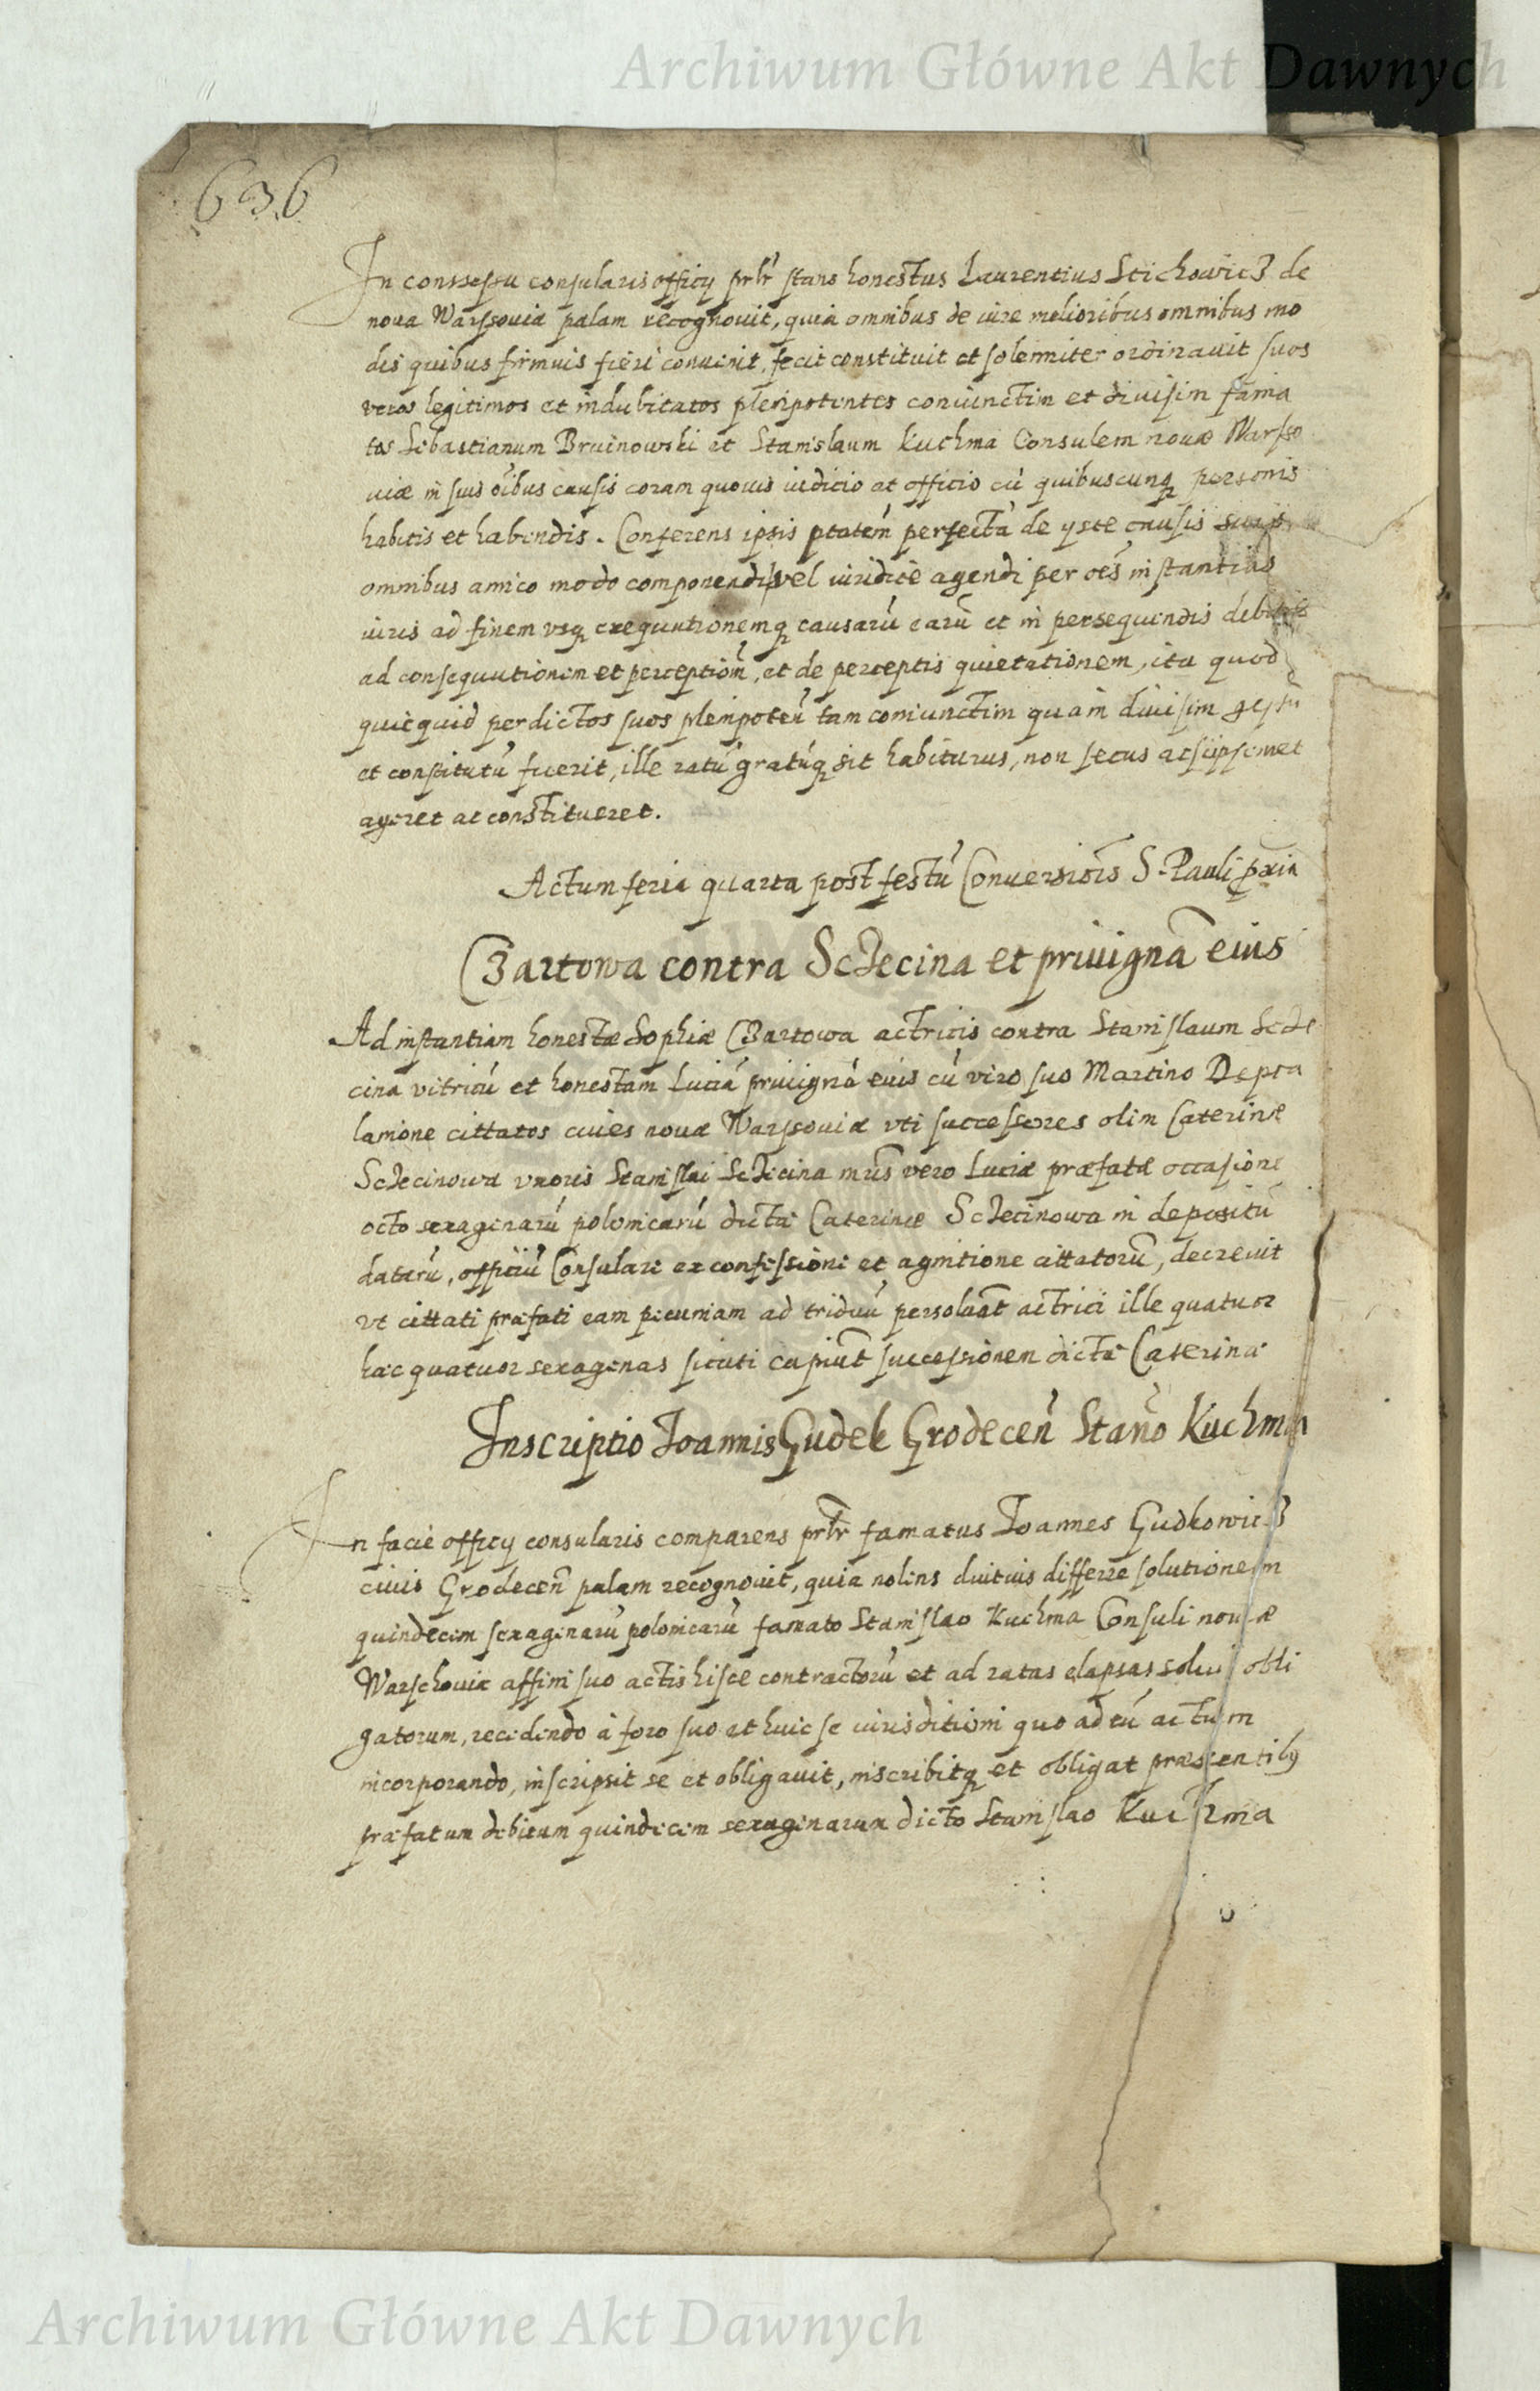 Archiwum Główne Akt Dawnych
636
In conssessu consularis officij prńr stans honestus Laurentius Stichowicz de
noua Warssouia palam recognouit, quia omnibus de iure melioribus omnibus mo
dis quibus firmius fieri conuenit, fecit constituit et solemniter ordinauit suos
veros legitimos et indubitatos plenipotentes coniunctim et diuisim fama
tos Sebastianum Bruinowski et Stanislaum Kuchma Consulem nouæ Warsso
uiæ in suis oībus causis coram quouis iudicio et officio cū quibuscunq personis
habitis et habendis. Conferens ipsis ptatem perfectā de yste causis
omnibus amico modo componendi vel iuridice agendi per oēs instantias
iuris ad finem vsq exequutionemq causarū earū et in persequendis debitis
ad consequutionem et perceptionē, et de perceptis quietationem, ita quod
quicquid per dictos suos plenipoteń tam coniunctim quam diuisim gestū
et constitutū fuerit, ille ratū gratūq sit habiturus, non secus ac si ipsemet
ageret ac constitueret.
Actum feria quarta post festū Conuersiois S. Pauli pxia
Czartowa contra Sczecina et priuignā eius
Ad instantiam honestæ Sophiæ Czartowa actricis contra Stanislaum Scze
cina vitricū et honestam Luciā priuignā eius cū viro suo Martino Depta
lamone cittatos ciues nouæ Warsouiæ vti successores olim Caterinæ
Sczecinowa vxoris Stanislai Sczecina mris vero Luciæ præfatæ occasione
octo sexagenarū polonicarū dictæ Caterinæ Sczecinowa in depositū
datarū, officiū Consulare ex confessione et agnitione cittatorū, decreuit
vt cittati præfati eam pecuniam ad triduū persoluāt actrici ille quatuor
hæc quatuor sexagenas sicuti capiūt successionem dictæ Caterinæ
Inscriptio Ioannis Gudek Grodeceń Stanō Kuchma
In facie officij consularis comparens prńr famatus Ioannes Gudkowicz
ciuis Grodeceń palam recognouit, quia nolens diutius differre solutionem
quindecim sexagenarū polonicarū famato Stanislao Kuchma Consuli nouæ
Warschouiæ affini suo actis hisce contractorū et ad ratas elapsas solui obli
gatorum, recedendo à foro suo et huic se iurisditioni quo ad eū actum
incorporando, inscripsit se et obligauit, inscribitq et obligat præsentibꝫ
præfatum debitum quindecim sexagenarum dicto Stanislao Kuchma
Archiwum Główne Akt Dawnych